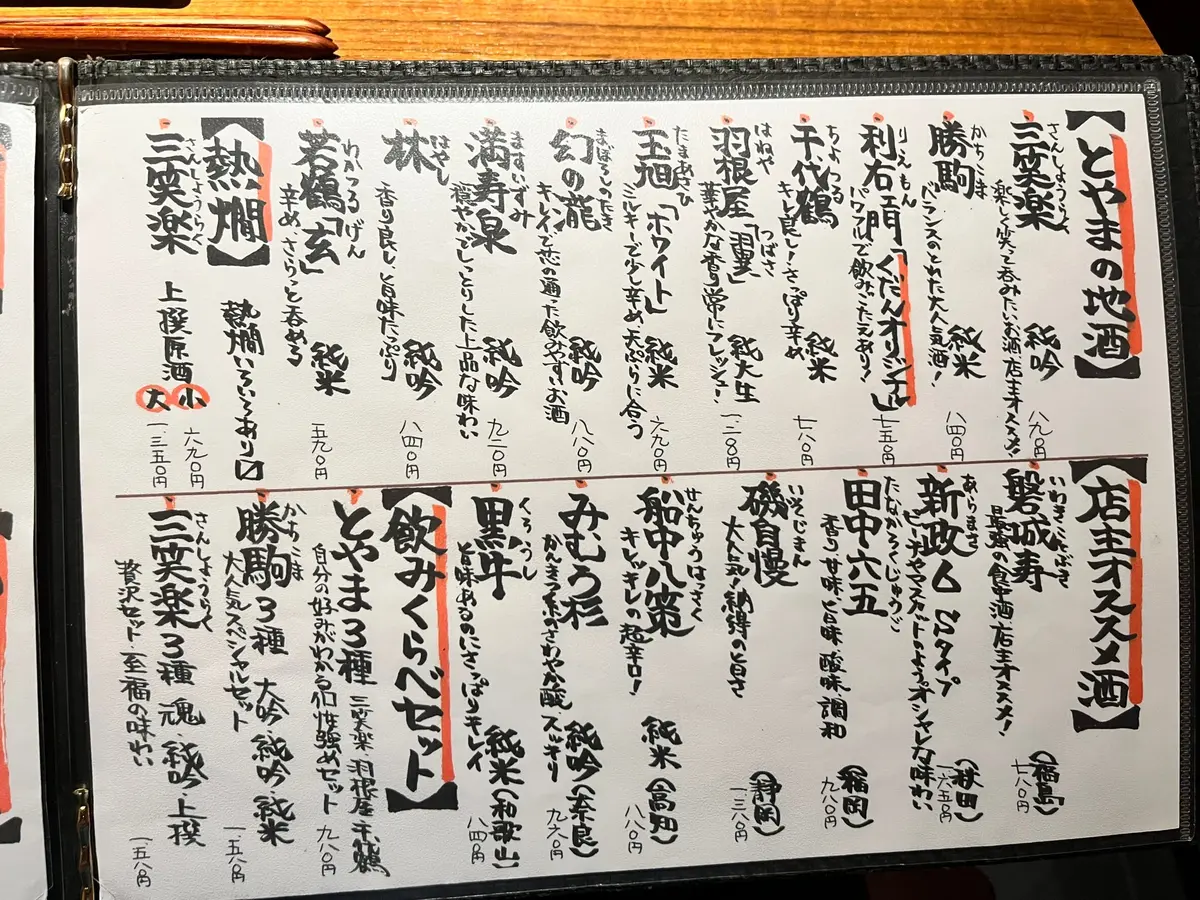 【とやまの地酒】
さんしょうらく
三笑楽 純吟 八九〇円
楽しく笑って呑みたいお酒、店主オススメ!
かちこま
勝駒 純米 八四〇円
バランスのとれた大人気酒!
りえもん
利右エ門「くだんオリジナル」 七五〇円
パワフルで飲みごたえあり!
ちよづる
千代鶴 純米 七八〇円
キレ良し!さっぱり辛め
はねや つばさ
羽根屋「翼」 純大生 一、二〇〇円
華やかな香り常にフレッシュ!
たまあさひ
玉旭「ホワイト」 純米 六九〇円
ミルキーで少し辛め 天ぷらに合う
まぼろしのたき
幻の瀧 純吟 八八〇円
キレイで芯の通った飲みやすいお酒
ますいずみ
満寿泉 純吟 九二〇円
穏やかでしっとりした上品な味わい
はやし
林 純吟 八四〇円
香り良し、旨味たっぷり
わかつる げん
若鶴「玄」 純米 五九〇円
辛め、さらっと呑める
【熱燗】 熱燗いろいろあり〼
さんしょうらく
三笑楽 上撰原酒 小 六九〇円
大 一、三五〇円
【店主オススメ酒】
いわきことぶき
磐城寿 (福島) 七八〇円
最強の食中酒、店主オススメ!
あらまさ
新政6 Sタイプ (秋田) 一、六五〇円
ピーチやマスカットのようオシャレな味わい
たなかろくじゅうご
田中六五 (福岡) 九八〇円
香り 甘味 旨味 酸味 調和
いそじまん
磯自慢 (静岡) 一、三八〇円
大人気!納得の旨さ
せんちゅうはっさく
船中八策 純米 (高知) 八八〇円
キレッキレの超辛口!
みむろ杉 純吟 (奈良) 九六〇円
かんきつ系のさわやか酸 スッキリ
くろうし
黒牛 純米 (和歌山) 八四〇円
旨味あるのにさっぱりキレイ
【飲みくらべセット】
とやま3種 三笑楽・羽根屋・千代鶴
自分の好みがわかる個性強めセット 九八〇円
かちこま
勝駒3種 大吟・純吟・純米
大人気スペシャルセット 一、五八〇円
さんしょうらく
三笑楽3種 魂・純吟・上撰
贅沢セット・至福の味わい 一、五八〇円